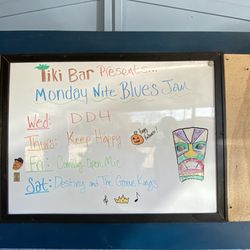 Tiki Bar Presents...
Monday Nite Blues Jam
Wed: DD4
Thurs: Keep Happy
Fri: Comedy Open Mic
Sat: Destiny and The Groove Kings